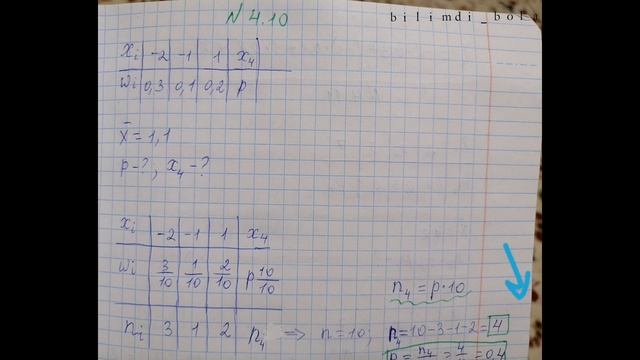 N 4.10
bilimdi_bola
xi | -2 | -1 | 1 | x4
wi | 0,3 | 0,1 | 0,2 | p
x̄ = 1,1
p-?, x4-?
xi | -2 | -1 | 1 | x4
wi | 3/10 | 1/10 | 2/10 | p 10/10
n4 = p·10
ni | 3 | 1 | 2 | n4 ⇒ n=10; n4=10-3-1-2=4
p = n4/ = 4/ = 0,4